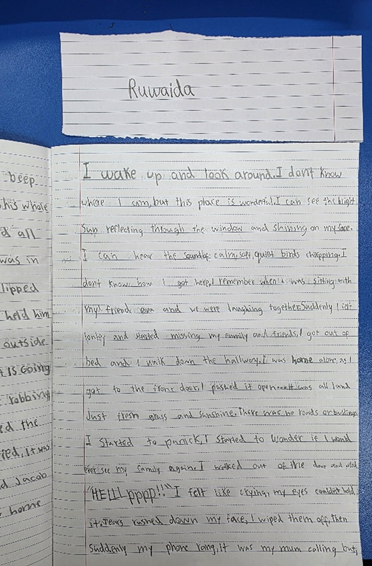 Ruwaida
beep
his whole
d all
was in
lipped
held him
outside
It is Going
robbing
ed the
ped. It was
d Jacob
home
I wake up and look around. I dont know
where I am, but this place is wonderful. I can see the bright
Sun reflecting through the window and shining on my face.
I can hear the calming, soft, quiet birds chirpping. I
dont know how I got here, I remember when I was sitting with
my friends and we were laughing together. Suddenly I
lonley and started missing my family and friends. I got out of
bed and I walk down the hallway. I was home alone. as I
got to the front door, I pushed it open was all land
Just fresh grass and sunshine. There was no roads or buildings
I started to panick. I started to wonder if I would
ever see my family again. I walked out of the door and
"HELLL pppp!!" I felt like crying, my eyes couldnt hold
it. Tears rushed down my face, I wiped them off, then
suddenly my phone rang. It was my mum calling but,